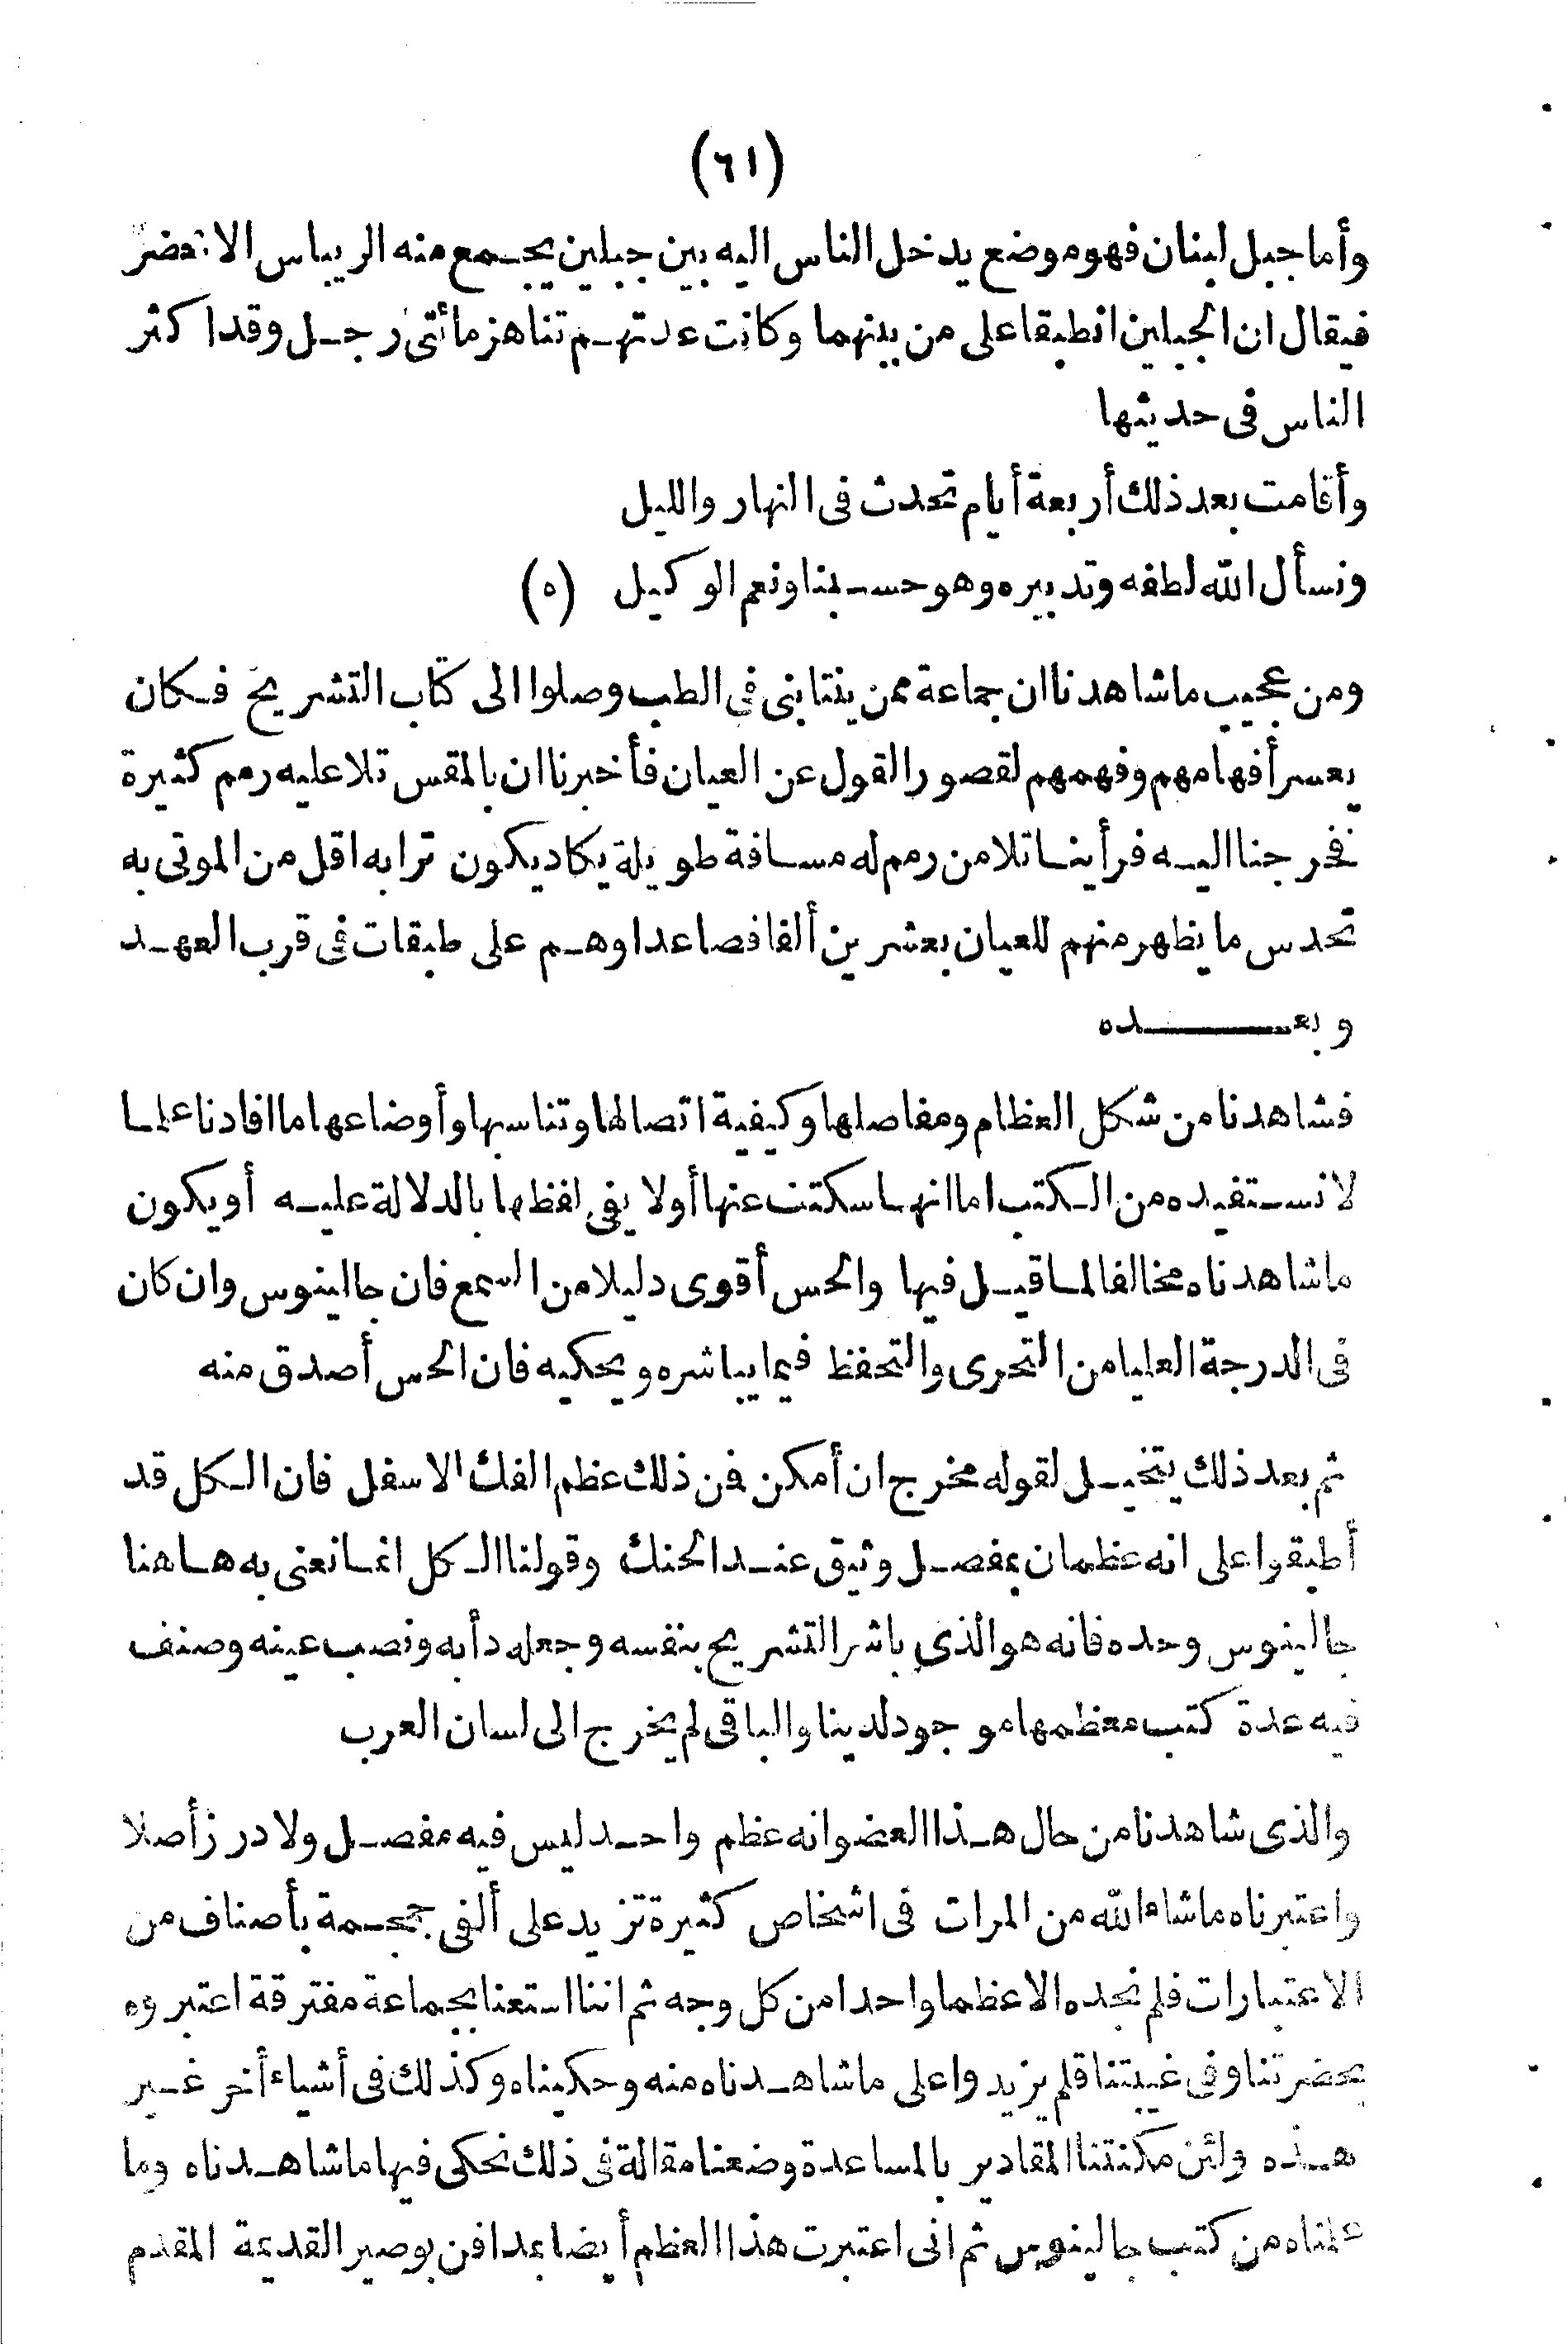 (٦١)
وأما جبل لبنان فهو موضع يدخل الناس اليه بين جبلين يجمع منه الريباس الاخضر
فيقال ان الجبلين انطبقا على من بينهما وكانت عدتهم تناهز مائتى رجل وقد اكثر
الناس فى حديثها
وأقامت بعد ذلك أربعة أيام تحدث فى النهار والليل
ونسأل الله لطفه وتدبيره وهو حسبنا ونعم الوكيل (٥)
ومن عجيب ما شاهدنا ان جماعة ممن ينتابنى فى الطب وصلوا الى كتاب التشريح فكان
يعسر أفهامهم وفهمهم لقصور القول عن العيان فأخبرنا ان بالمقس تلا عليه رمم كثيرة
نخرجنا اليه فرأينا تلا من رمم له مسافة طويلة يكاد يكون ترابه اقل من الموتى به
تحدس ما يظهر منهم للعيان بعشرين ألفا فصاعدا وهم على طبقات فى قرب العهد
وبعده
فشاهدنا من شكل العظام ومفاصلها وكيفية اتصالها وتناسبها وأوضاعها ما افادنا علما
لا نستفيده من الكتب اما انها سكتت عنها أو لا يفى لفظها بالدلالة عليه أو يكون
ما شاهدناه مخالفا لما قيل فيها والحس أقوى دليلا من السمع فان جالينوس وان كان
فى الدرجة العليا من التحرى والتحفظ فيما يباشره ويحكيه فان الحس أصدق منه
ثم بعد ذلك يتخيل لقوله مخرج ان أمكن فمن ذلك عظم الفك الاسفل فان الكل قد
أطبقوا على انه عظمان بمفصل وثيق عند الحنك وقولنا الكل انما نعنى به هاهنا
جالينوس وحده فانه هو الذى باشر التشريح بنفسه وجعله دأبه ونصب عينه وصنف
فيه عدة كتب معظمها موجود لدينا والباقى لم يخرج الى لسان العرب
والذى شاهدنا من حال هذا العضو انه عظم واحد ليس فيه مفصل ولا درز أصلا
واعتبرناه ما شاء الله من المرات فى اشخاص كثيرة تزيد على ألفى جمجمة بأصناف من
الاعتبارات فلم نجده الا عظما واحدا من كل وجه ثم اننا استعنا بجماعة مفترقة اعتبروه
بحضرتنا وفى غيبتنا فلم يزيدوا على ما شاهدناه منه وحكيناه وكذلك فى أشياء أخر غير
هذه ولئن مكنتنا المقادير بالمساعدة وضعنا مقالة فى ذلك نحكى فيها ما شاهدناه وما
علمناه من كتب جالينوس ثم انى اعتبرت هذا العظم أيضا بمدافن بوصير القديمة المقدم